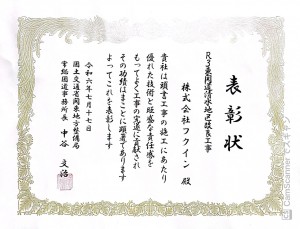 表彰状
R3東関道清水地区改良工事
株式会社フクイン 殿
貴社は頭書工事の施工にあたり
優れた技術と旺盛な責任感を
もってよく工事の完遂に貢献され
その功績はまことに顕著であります
よってこれを表彰します
令和六年七月十七日
国土交通省関東地方整備局
常総国道事務所長 中谷
CamScanner でスキャン